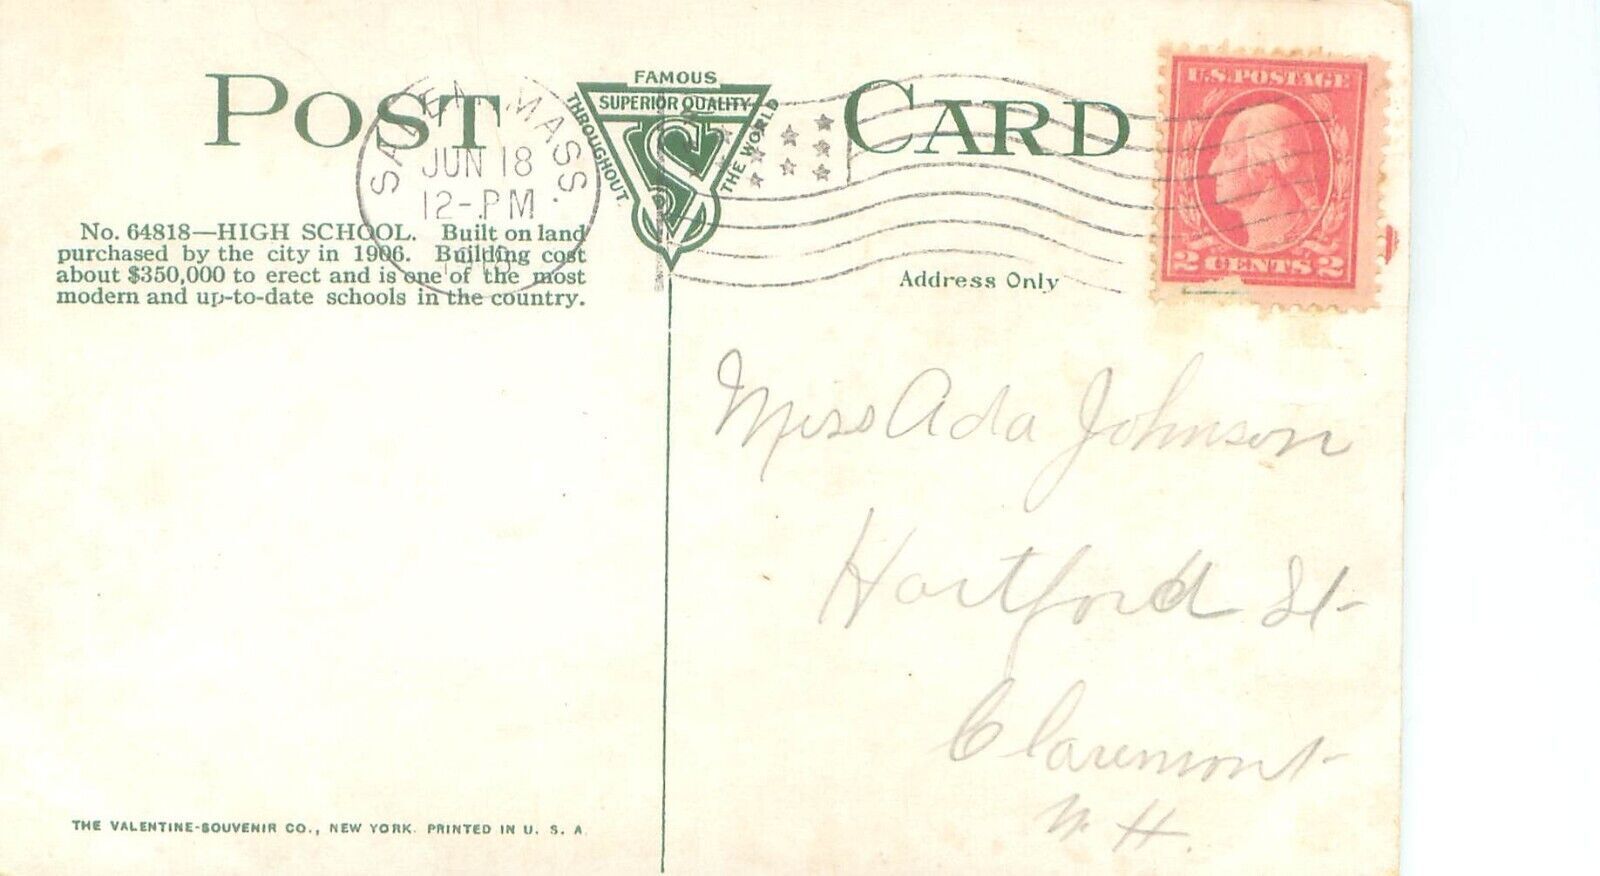 POST CARD
FAMOUS
THROUGHOUT
THE WORLD
SUPERIOR QUALITY
VS
SALEM, MASS.
JUN 18
12-PM
U.S. POSTAGE
2 CENTS 2
No. 64818—HIGH SCHOOL. Built on land
purchased by the city in 1906. Building cost
about $350,000 to erect and is one of the most
modern and up-to-date schools in the country.
Address Only
Miss Ada Johnson
Hartford St
Claremont
N. H.
THE VALENTINE-SOUVENIR CO., NEW YORK. PRINTED IN U. S. A.